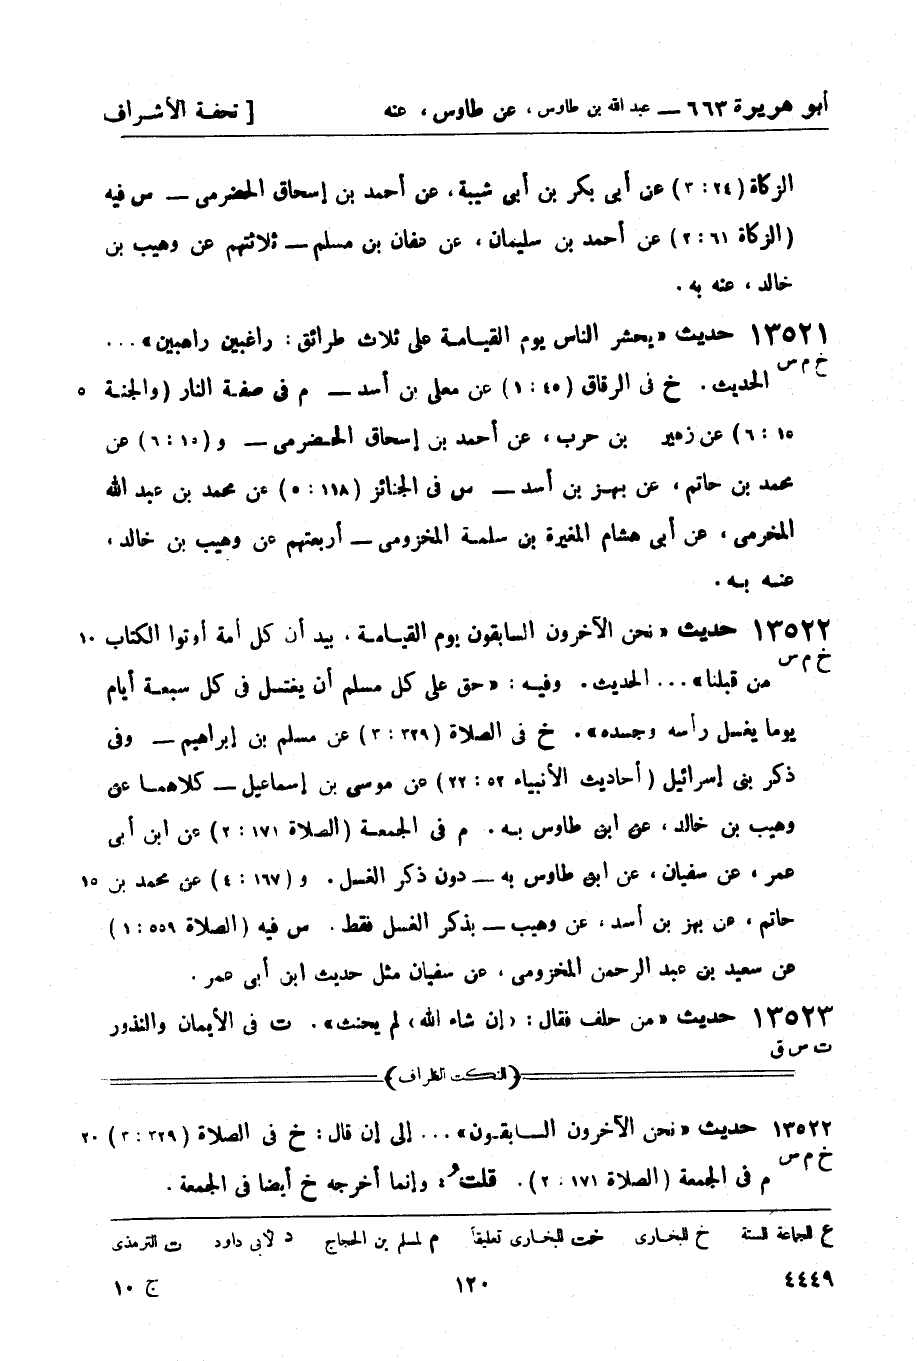 أبو هريرة ٦٦٣ — عبد الله بن طاوس، عن طاوس، عنه [ تحفة الأشراف
الزكاة (٢٤ : ٣) عن أبى بكر بن أبى شيبة، عن أحمد بن إسحاق الحضرمى — س فيه
(الزكاة ٦١ : ٢) عن أحمد بن سليمان، عن عفان بن مسلم — ثلاثتهم عن وهيب بن
خالد، عنه به.
١٣٥٢١ حديث «يحشر الناس يوم القيامة على ثلاث طرائق : راغبين راهبين» ...
خ م س
الحديث. خ فى الرقاق (٤٥ : ١) عن معلى بن أسد — م فى صفة النار (والجنة ٥
١٥ : ٦) عن زهير بن حرب، عن أحمد بن إسحاق الحضرمى — و (١٥ : ٦) عن
محمد بن حاتم، عن بهز بن أسد — س فى الجنائز (١١٨ : ٥) عن محمد بن عبد الله
المخرمى، عن أبى هشام المغيرة بن سلمة المخزومى — أربعتهم عن وهيب بن خالد،
عنه به.
١٣٥٢٢ حديث «نحن الآخرون السابقون يوم القيامة، بيد أن كل أمة أوتوا الكتاب ١٠
خ م س
من قبلنا» ... الحديث. وفيه : «حق على كل مسلم أن يغتسل فى كل سبعة أيام
يوما يغسل رأسه وجسده». خ فى الصلاة (٣٢٩ : ٣) عن مسلم بن إبراهيم — وفى
ذكر بنى إسرائيل (أحاديث الأنبياء ٥٢ : ٢٢) عن موسى بن إسماعيل — كلاهما عن
وهيب بن خالد، عن ابن طاوس به. م فى الجمعة (الصلاة ١٧١ : ٢) عن ابن أبى
عمر، عن سفيان، عن ابن طاوس به — دون ذكر الغسل. و (١٦٧ : ٤) عن محمد بن ١٥
حاتم، عن بهز بن أسد، عن وهيب — بذكر الغسل فقط. س فيه (الصلاة ٥٥٩ : ١)
عن سعيد بن عبد الرحمن المخزومى، عن سفيان مثل حديث ابن أبى عمر.
١٣٥٢٣ حديث «من حلف فقال : (إن شاء الله) لم يحنث». ت فى الأيمان والنذور
ت س ق
(النكت الظراف)
١٣٥٢٢ حديث «نحن الآخرون السابقون» ... إلى إن قال : خ فى الصلاة (٣٢٩ : ٣) ٢٠
خ م س
م فى الجمعة (الصلاة ١٧١ : ٢). قلت : وإنما أخرجه خ أيضا فى الجمعة.
ع للجماعة الستة خ للبخارى خت للبخارى تعليقاً م لمسلم بن الحجاج د لأبى داود ت للترمذى
٤٤٤٩ ١٢٠ ج ١٠